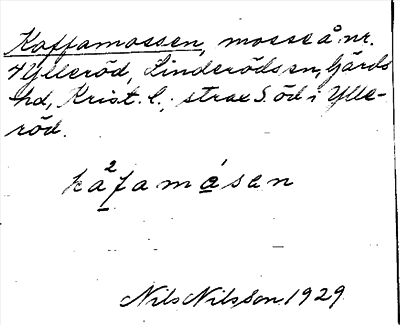 Kaffamossen, mosse å nr.
4 Ylleröd, Linderöds sn, Gärds
hd, Krist. l.; strax S. öd i Ylle-
röd.
ka²famåsen
Nils Nilsson 1929.